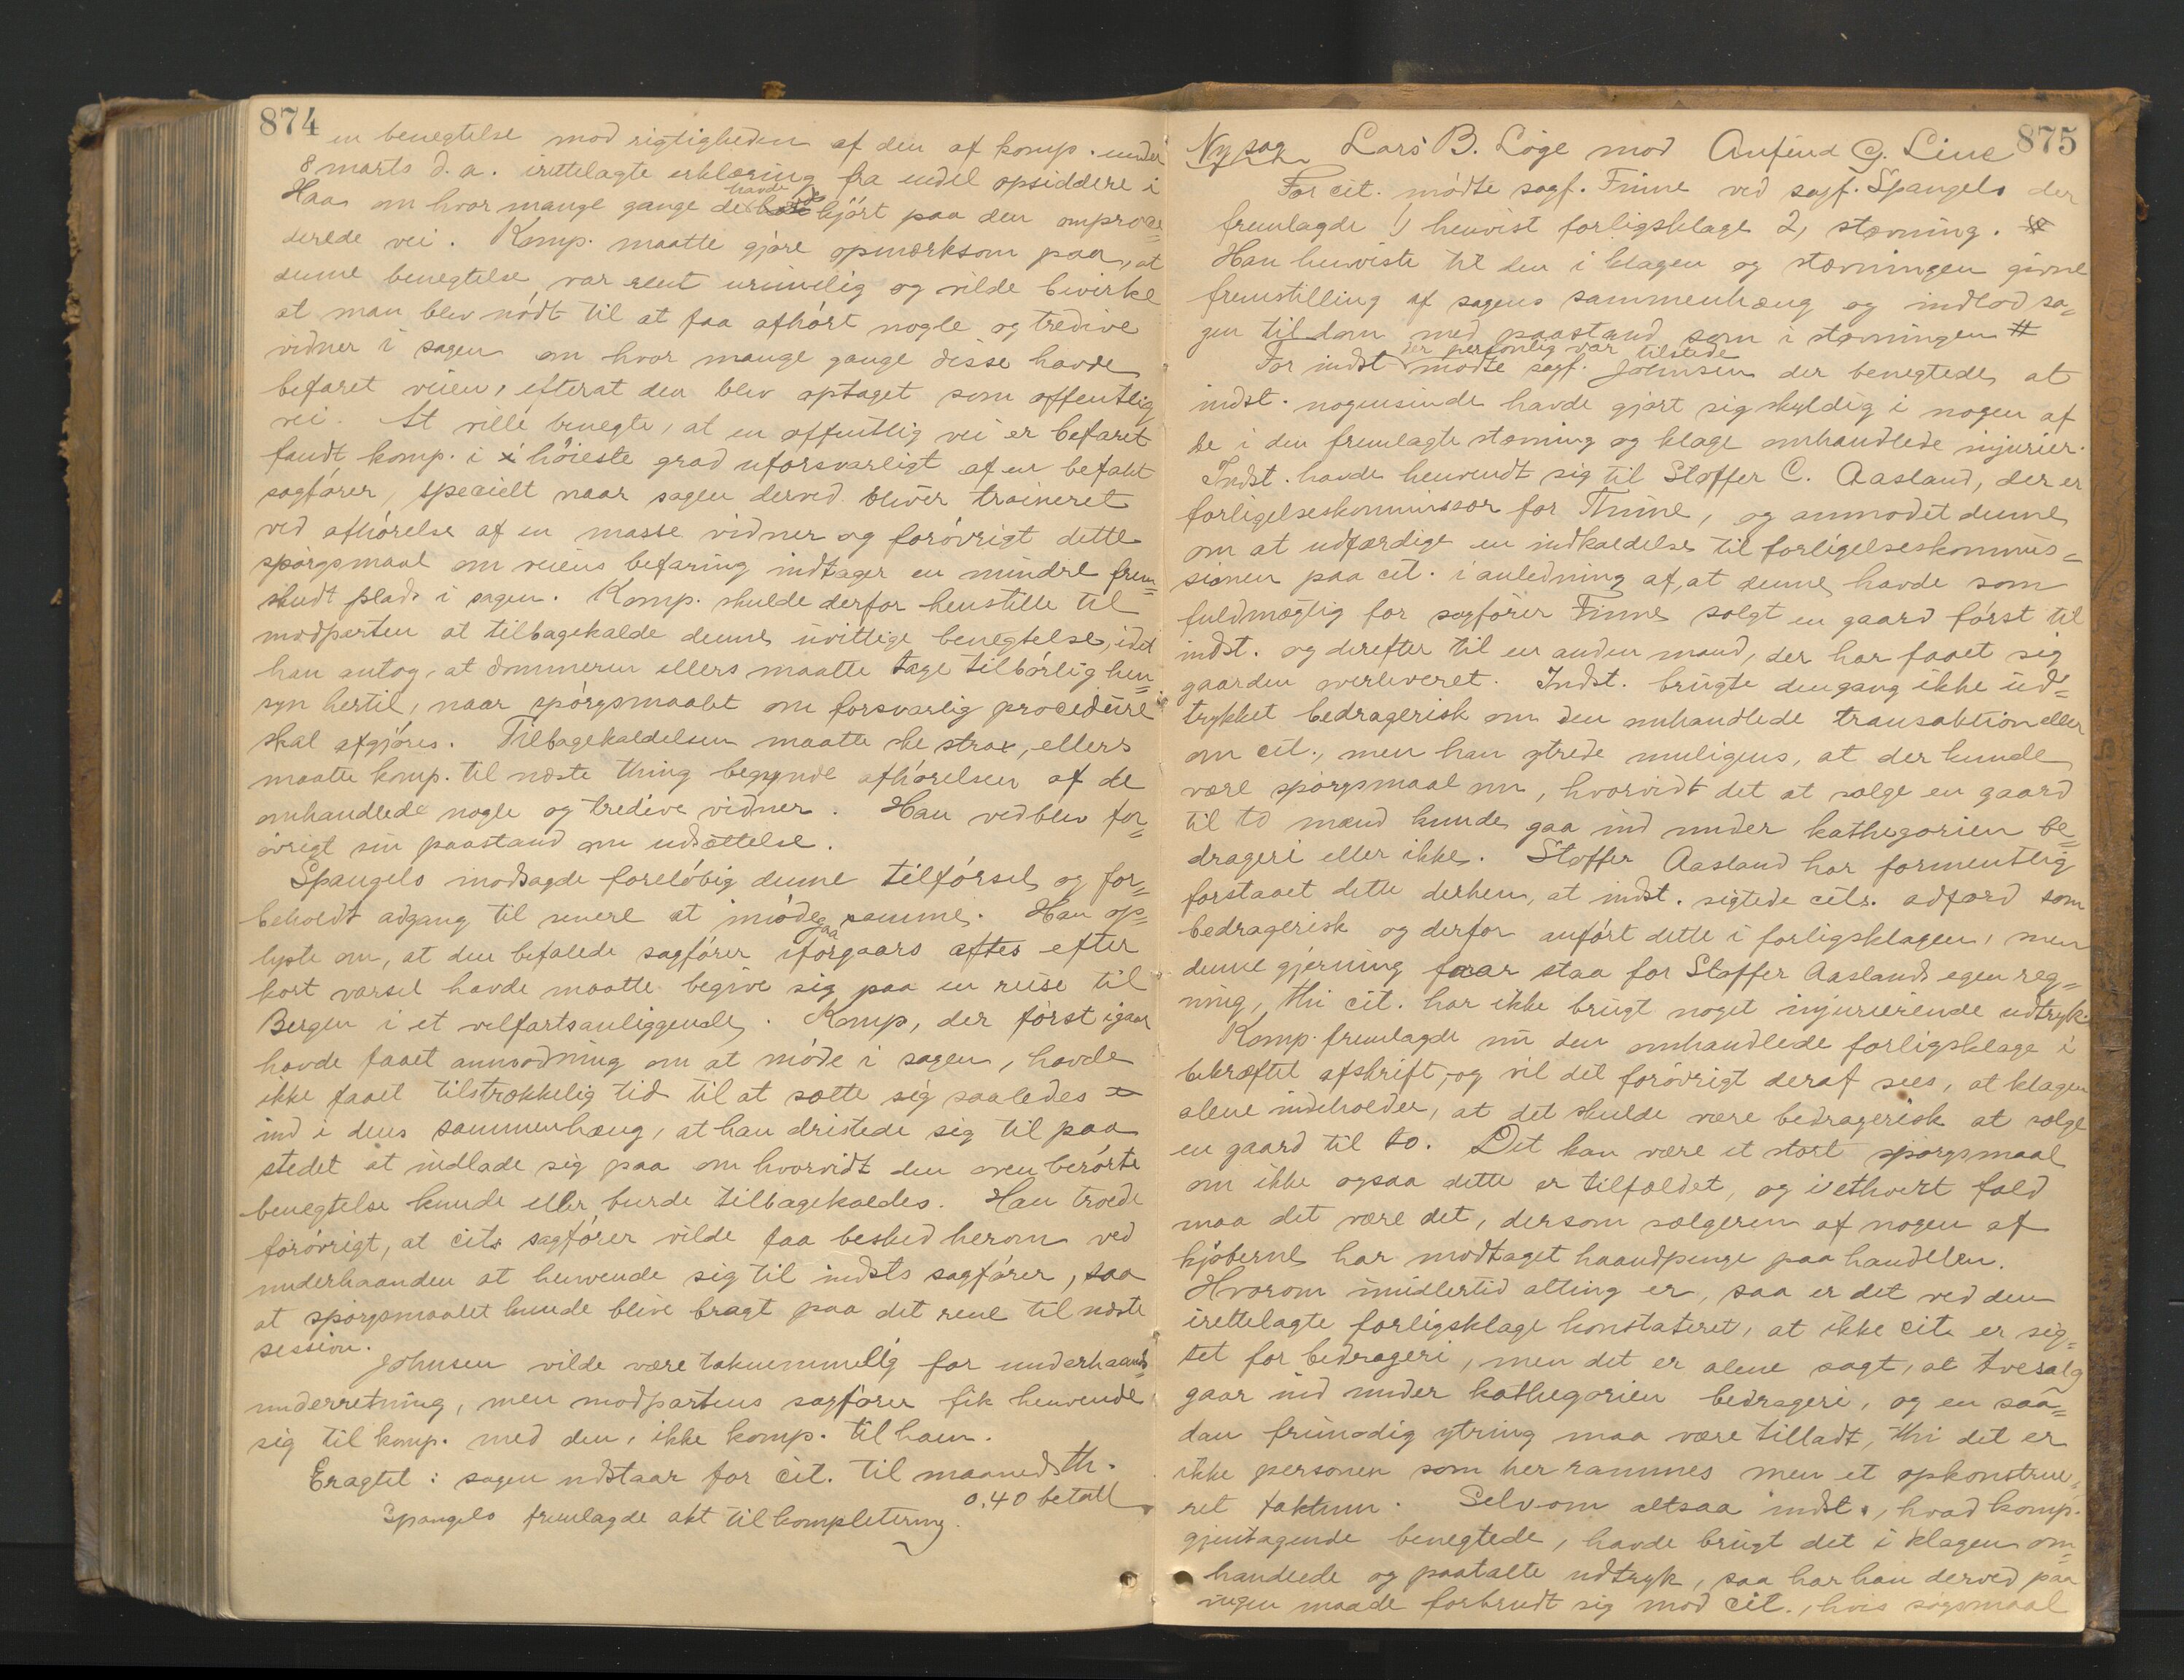 874
en benegtelse mod rigtigheden af den af komp. under
8 marts d.a. irettelagte erklæring fra endel opsiddere i
Haa om hvor mange gange de havde kjört paa den omproce=
derede vei. Komp. maatte gjøre opmærksom paa, at
denne benegtelse var rent urimelig og vilde bevirke
at man blev nödt til at faa afhört nogle og tredive
vidner i sagen om hvor mange gange disse havde
befaret veien, efterat den blev optaget som offentlig
vei. At ville benegte, at en offentlig vei er befaret
fandt komp. i höieste grad uforsvarligt af en befalet
sagförer, specielt naar sagen derved bliver traineret
ved afhörelse af en masse vidner og forövrigt dette
spörgsmaal om veiens befaring indtager en mindre frem=
skudt plads i sagen. Komp. skulde derfor henstille til
modparten at tilbagekalde denne uvittige benegtelse, idet
han antog, at dommeren ellers maatte tage tilbörlig hen=
syn hertil, naar spörgsmaalet om forsvarlig procedure
skal afgjöres. Tilbagekaldelsen maatte ske strax, ellers
maatte komp. til næste thing begynde afhörelsen af de
omhandlede nogle og tredive vidner. Han vedblev for=
övrigt sin paastand om udsættelse.
Spangelo modsagde foreløbig denne tilförsel og for=
beholdt adgang til senere at imödegaa samme. Han op=
lyste om, at den befalede sagförer iforgaars aftes efter
kort varsel havde maatte begive sig paa en reise til
Bergen i et velfartsanliggende. Komp, der först igaar
havde faaet anmodning om at möde i sagen, havde
ikke faaet tilstrækkelig tid til at sætte sig saaledes
ind i dens sammenhæng, at han dristede sig til paa
stedet at indlade sig paa om hvorvidt den ovenberörte
benegtelse kunde eller burde tilbagekaldes. Han troede
forövrigt, at cits sagförer vilde faa besked herom ved
underhaanden at henvende sig til indsts sagförer, saa
at spörgsmaalet kunde blive bragt paa det rene til næste
session.
Johnsen vilde være taknemmelig for underhaands
underretning, men modpartens sagförer fik henvende
sig til komp. med den, ikke komp. til ham.
Eragtet: sagen udstaar for cit. til maanedsth.
0.40 betalt
Spangelo fremlagde akt til kompletering.
875
Ny sag Lars B. Löge mod Anfind G. Line
For cit. mödte sagf. Finne ved sagf. Spangelo der
fremlagde 1) henvist forligsklage 2, stævning.
Han henviste til den i klagen og stævningen givne
fremstilling af sagens sammenhæng og indlod sa=
gen til dom med paastand som i stævningen #
For indst der personlig var tilstede mødte sagf. Johnsen der benegtede, at
indst. nogensinde havde gjort sig skyldig i nogen af
de i den fremlagte stævning og klage omhandlede injurier.
Indst. havde henvendt sig til Stoffer C. Aasland, der er
forligelseskommissær for Thime, og anmodet denne
om at udfærdige en indkaldelse til forligelseskommis=
sionen paa cit. i anledning af, at denne havde som
fuldmægtig for sagförer Finne solgt en gaard först til
indst. og derefter til en anden mand, der har faaet sig
gaarden overleveret. Indst. brugte dengang ikke ud=
trykket bedragerisk om den omhandlede transaktion eller
om cit., men han ytrede muligens, at der kunde
være spörgsmaal om, hvorvidt det at sælge en gaard
til to mænd kunde gaa ind under kathegorien be=
drageri eller ikke. Stoffer Aasland har formentlig
forstaaet dette derhen, at indst. sigtede cits. adfærd som
bedragerisk og derfor anført dette i forligsklagen, men
denne gjerning faar staa for Stoffer Aaslands egen reg=
ning, thi cit. har ikke brugt noget injurierende udtryk.
Komp. fremlagde nu den omhandlede forligsklage i
bekræftet afskrift, og vil det forövrigt deraf sees, at klagen
alene indeholder, at det skulde være bedragerisk at sælge
en gaard til to. Det kan være et stort spörgsmaal
om ikke ogsaa dette er tilfældet, og i ethvert fald
maa det være det, dersom sælgeren af nogen af
kjöberne har modtaget haandpenge paa handelen.
Hvorom imidlertid alting er, saa er det ved den
irettelagte forligsklage konstateret, at ikke cit. er sig=
tet for bedrageri, men det er alene sagt, at tvesalg
gaar ind under kathegorien bedrageri, og en saa=
dan frimodig ytring maa være tilladt, thi det er
ikke personen som her rammes men et opkonstrue=
ret faktum. Selv om altsaa indst., hvad komp.
gjentagende benegtede, havde brugt det i klagen om=
handlede og paatalte udtryk, saa har han derved paa
ingen maade forbrudt sig mod cit., hvis søgsmaal